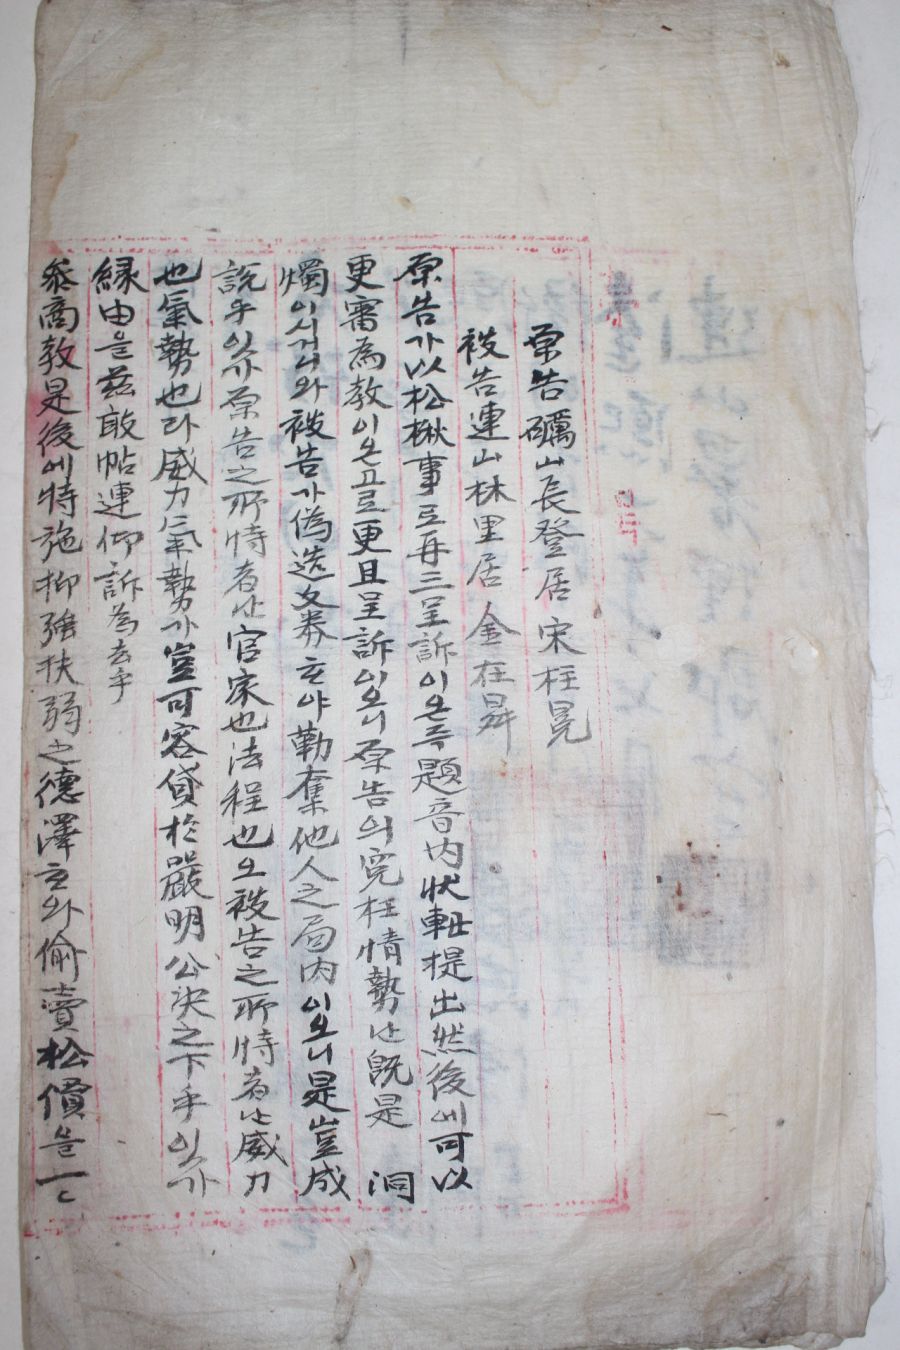 原告礪山長登居宋柱冕
被告連山林里居金在昇
原告가以松楸事로再三呈訴이온즉題音內狀軸提出然後에可以
更審為教이온고로更且呈訴이오니原告의寃枉情勢난旣是 洞
燭이시거니와被告가偽造文券하야勒奪他人之局內이오니是豈成
說乎잇가原告之所恃者난官家也法程也오被告之所恃者난威力
也氣勢也라威力氣勢가豈可容貸於嚴明公決之下乎잇가
緣由을玆敢帖連仰訴為去乎
叅商教是後에特施抑強扶弱之德澤하와偷賣松價을一〻